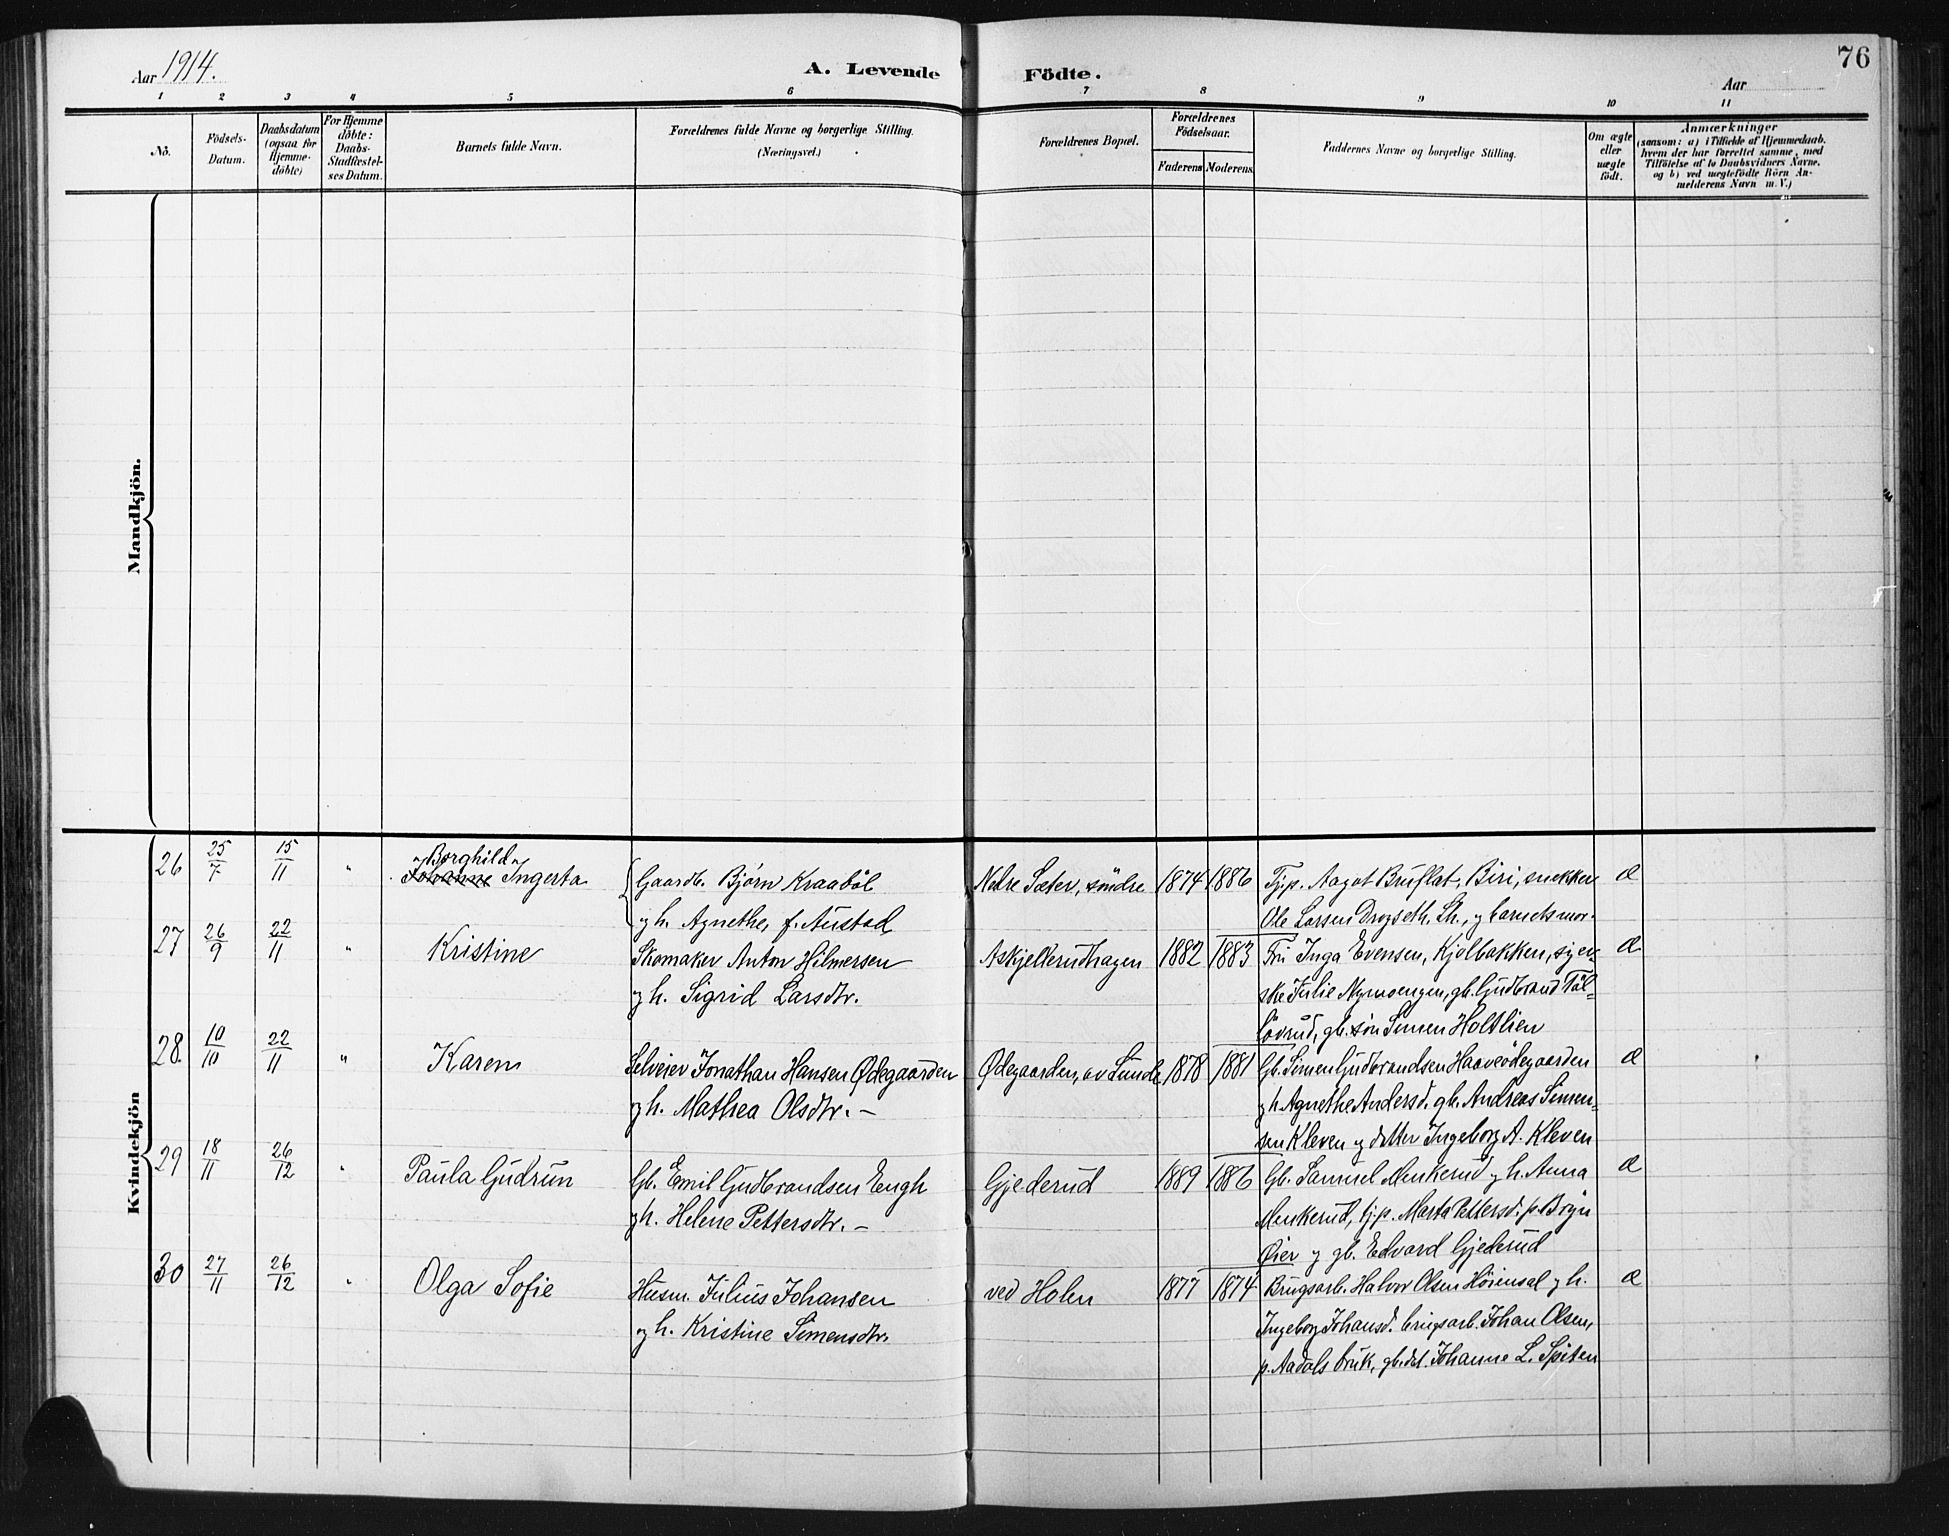 Aar 1914.
A. Levende Födte.
Aar
76
1 2 3 4 5 6 7 8 9 10 11
No.
Födsels-Datum.
Daabsdatum (ogsaa for Hjemme-döbte)
For Hjemme döbte: Daabs-Stadfestel-ses Datum.
Barnets fulde Navn.
Forældrenes fulde Navne og borgerlige Stilling. (Næringsvei.)
Forældrenes Bopæl.
Forældrenes Födselsaar.
Faderens Moderens.
Faddernes Navne og borgerlige Stilling.
Om ægte eller uægte födt.
Anmærkninger
(saasom: a) i Tilfælde af Hjemmedaab.
hvem der har forrettet samme, med
Tilföielse af to Daabsvidners Navne.
og b) ved uægtefödte Börn An-
melderens Navn m. V.)
Mandkjön.
Kvindekjön
26 25/7 15/11 " Borghild
Johanne Ingerta Gaardb. Bjørn Kraabøl Nedre Sæter, søndre 1874 1886 Tj.p. Aagot Bruflat, Biri, snekker Æ
og h. Agnethe, f. Austad Ole Larsen Drogseth, Lh., og barnets mor.
27 26/9 22/11 " Kristine Skomaker Anton Hilmersen Askjellerudhagen 1882 1883 Fru Inga Evensen, Kjølbakken, syer- Æ
og h. Sigrid Larsdtr. ske Julie Nymoengen, gb. Gudbrand Töl=
lövrud, gb.søn Simen Holtlien
28. 10/10 22/11 " Karen Selveier Jonathan Hansen Ødegaarden Ødegaarden, av Lunde 1878 1881 Gb. Simen Gudbrandsen Haaveødegaarden Æ
og h. Mathea Olsdtr. – og h Agnethe Andersd. gb. Andreas Simen=
sen Kleven og datter Ingeborg A. Kleven
29 18/11 26/12 " Paula Gudrun Gb. Emil Gudbrandsen Engh Gjederud 1889 1886 Gb. Samuel Menkerud og h. Anna Æ
og h. Helene Pettersdtr. – Menkerud, tj.p. Marta Pettersd. p. Bryn
Øier og gb. Edvard Gjederud
30 27/11 26/12 " Olga Sofie Husm. Julius Johansen ved Holen 1877 1874 Brugsarb. Halvor Olsen Hörensal og h. Æ
og h. Kristine Simensdtr. Ingeborg Johansd. brugsarb. Johan Olsen,
p. Aadals bruk, gb.dat. Johanne L. Spiten